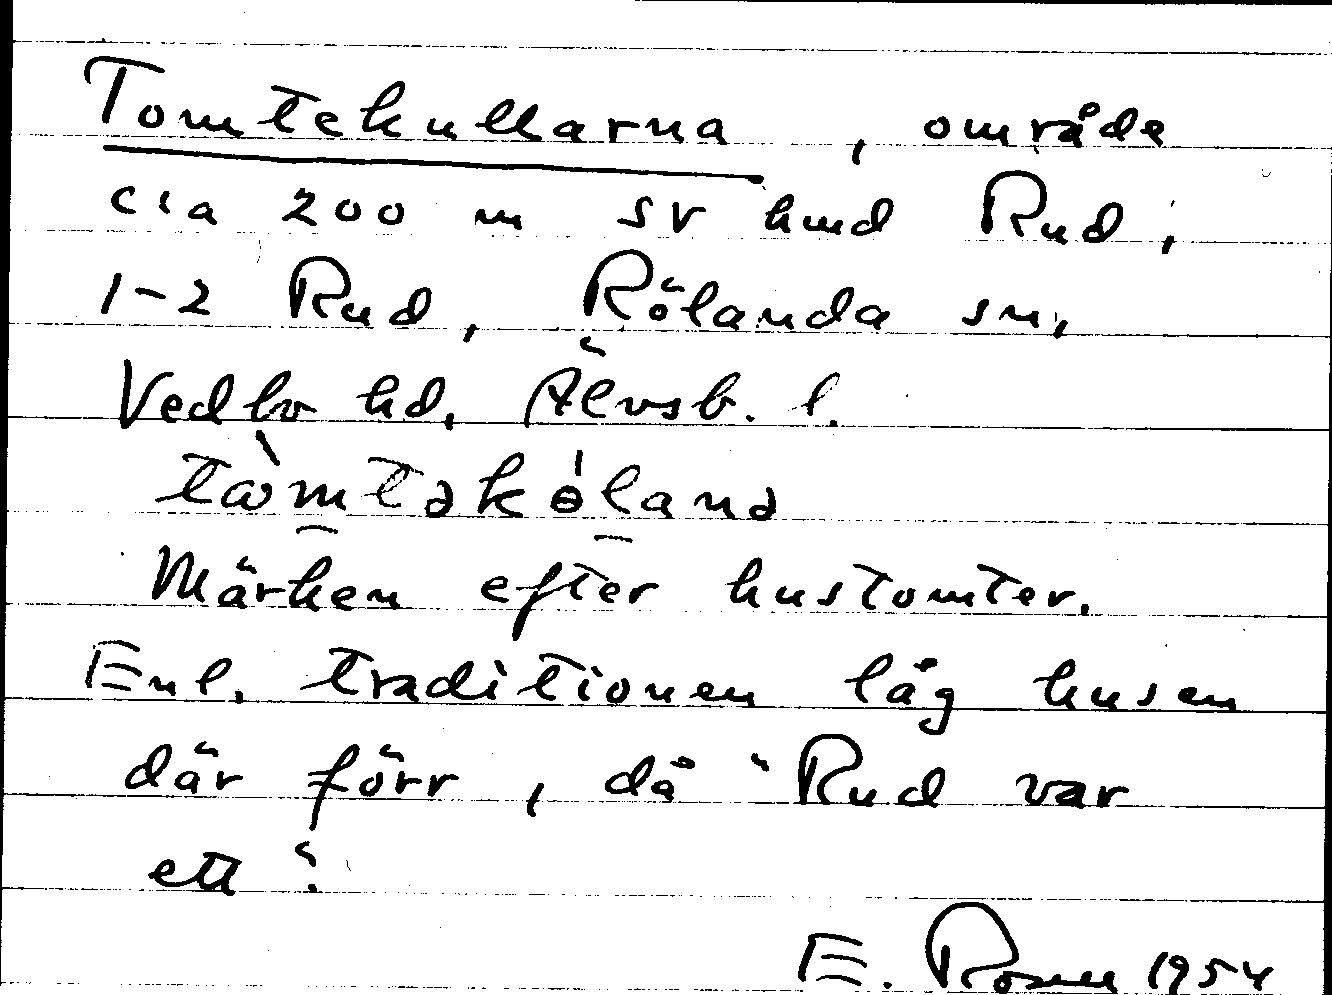 Tomtekullarna, område
cia 200 m SV hmd Rud,
1-2 Rud, Rölanda sn,
Vedbo hd, Älvsb. l.
tòmtəkɵ́lanə
Märken efter hustomter.
Enl. traditionen låg husen
där förr, då "Rud var
ett".
E. 1954